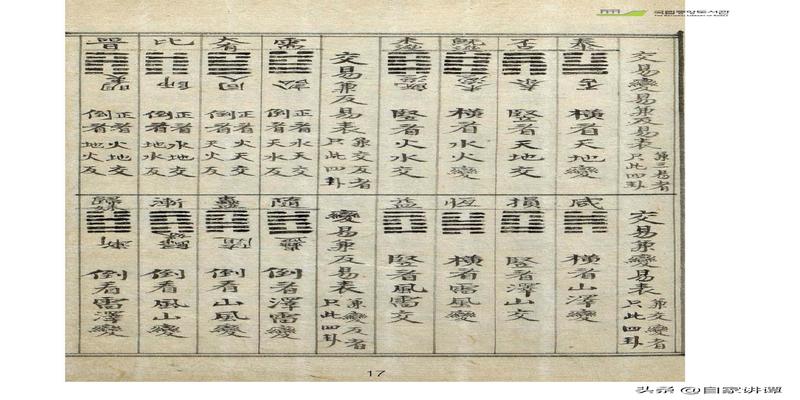 國立中央도서관
THE NATIONAL LIBRARY OF KOREA
交易變易兼反易表 兼三易者只此四卦
泰 否 橫看天地變
否 泰 竪看天地交
旣濟 未濟 橫看水火變
未濟 旣濟 竪看火水交
交易兼反易表 兼交反者只此四卦
需 訟 正看天水交 倒看天水反
大有 同人 正看火天交 倒看天火反
比 師 正看水地交 倒看地水反
晉 明夷 正看火地交 倒看地火反
交易兼變易表 兼交變者只此四卦
咸 橫看山澤變
損 竪看澤山交
恆 橫看雷風變
益 竪看風雷交
變易兼反易表 兼變反者只此四卦
隨 蠱 倒看澤雷變
蠱 隨 倒看山風變
漸 歸妹 倒看風山變
歸妹 漸 倒看雷澤變
17
头条 @自家讲谭